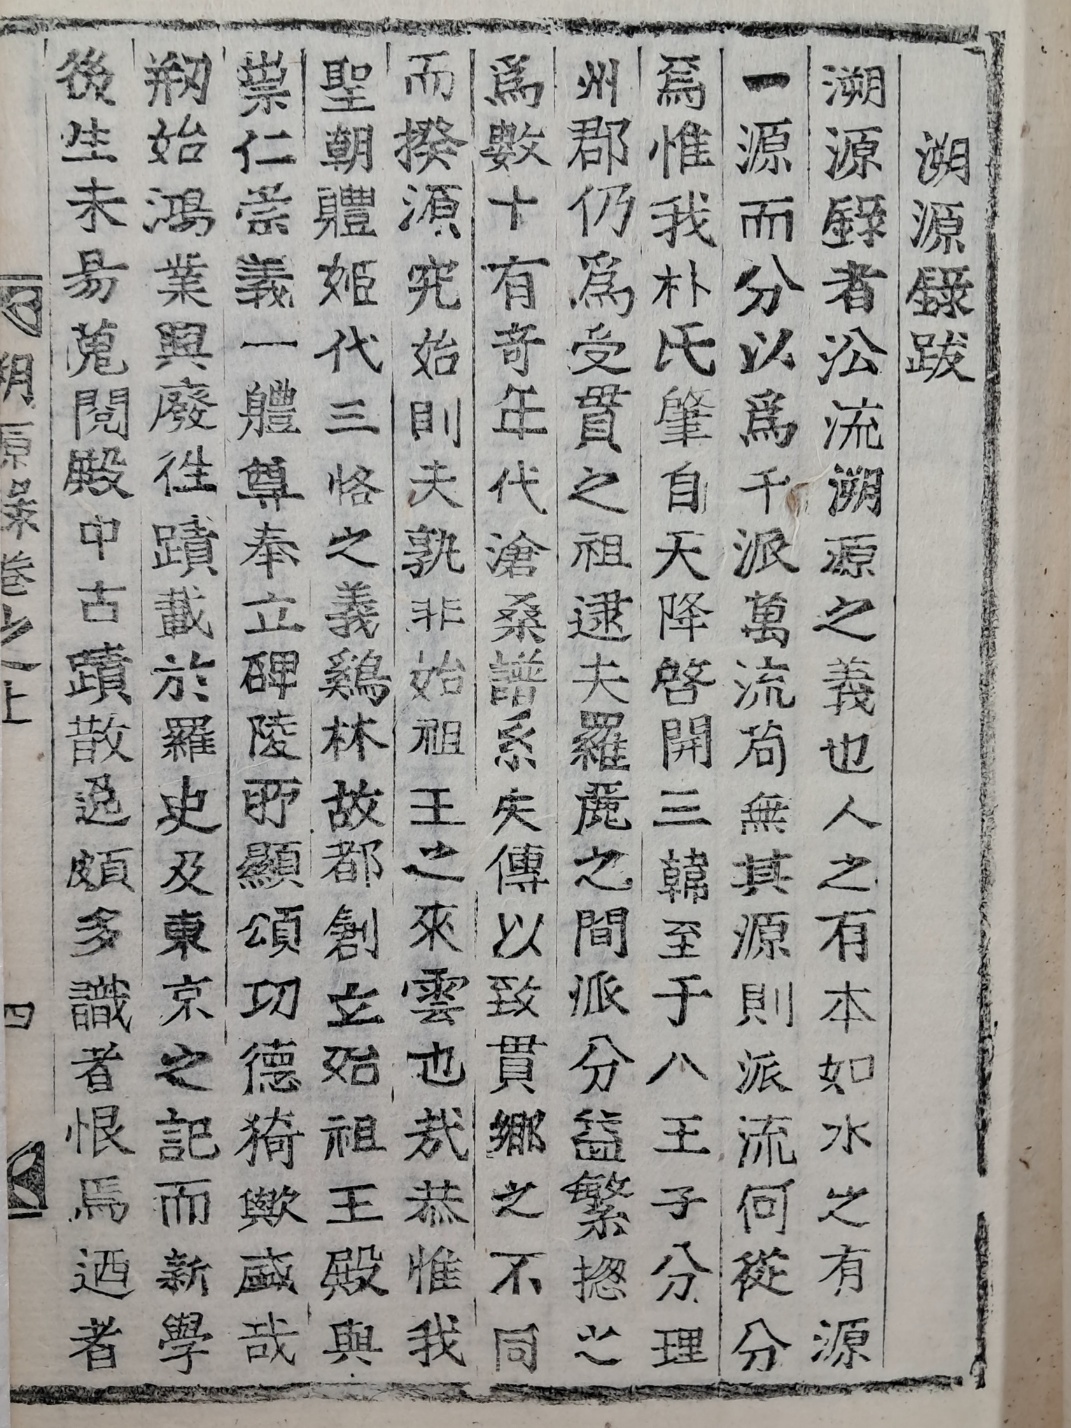 溯源錄跋
溯源錄者沿流溯源之義也人之有本如水之有源
一源而分以爲千派萬流苟無其源則派流何從分
焉惟我朴氏肇自天降啓開三韓至于八王子分理
州郡仍爲受貫之祖逮夫羅麗之間派分益繁揔之
爲數十有奇年代滄桑譜系失傳以致貫鄉之不同
而揆源究始則夫孰非始祖王之來雲也哉恭惟我
聖朝體姬代三恪之義鷄林故都創立始祖王殿與
崇仁崇義一軆尊奉立碑陵所顯頌功德猗歟盛哉
刱始鴻業興廢徃蹟載於羅史及東京之記而新學
後生未易蒐閱殿中古蹟散逸頗多識者恨焉迺者
溯源錄卷之上
四